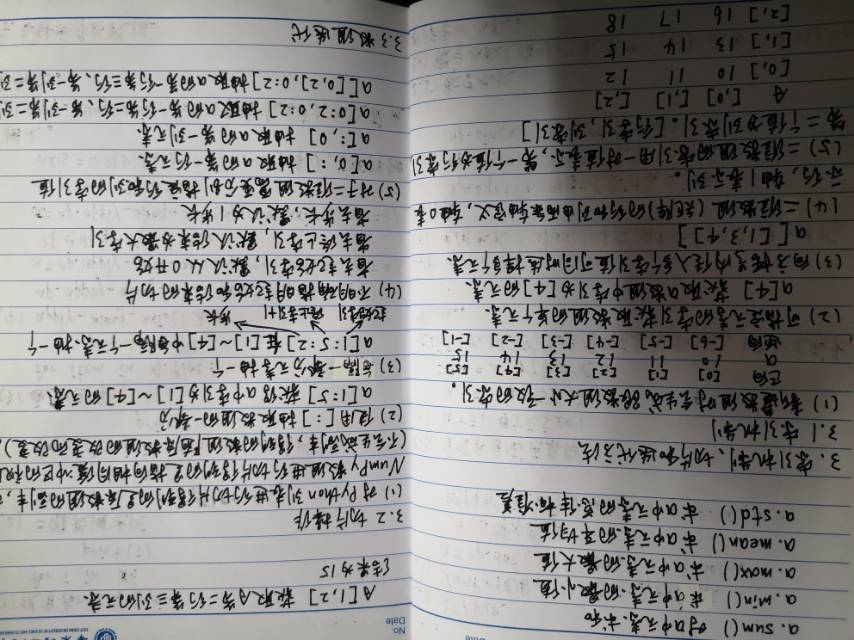 Date
a.sum() 对a中元素求和
a.min() 求a中元素的最小值
a.max() 求a中元素的最大值
a.mean() 求a中元素的平均值
a.std() 求a中元素的总体标准差
3. 索引机制、切片和迭代方法
3.1 索引机制
(1) 新建数组时会生成跟数组大小一致的索引。
正向 [0] [1] [2] [3] [4] [5]
a 10 11 12 13 14 15
逆向 [-6] [-5] [-4] [-3] [-2] [-1]
(2) 可指定元素的索引获取数组的单个元素.
a[4] 获取a数组中索引为[4]的元素.
(3) 向方括号内传入多个索引值可同时选择多个元素.
a[[1,3,4]]
(4) 二维数组(矩阵)的行和列由两条轴定义,轴0表
示行,轴1表示列。
(5) 二维数组的索引用一对值表示,第一个值为行索引
第二个值为列索引。[行索引,列索引]
A [,0] [,1] [,2]
[0,] 10 11 12
[1,] 13 14 15
[2,] 16 17 18
No.
Date
A[1,2] 获取A第二行第三列的元素.
结果为15
3.2 切片操作
(1) 对Python列表进行切片得到的是原数组的副本,
NumPy数组进行切片得到的是指向相同缓冲区的视
(不会生成副本,得到的数组随原数组的改变而改变)
(2) 使用[:] 抽取数组的一部分
a[1:5] 获得a中索引为[1]~[4]的元素.
(3) 每隔一部分元素抽一个
a[1:5:2] 在[1]~[4]中每隔一个元素抽一个
起始索引 终止索引+1 步长
(4) 不明确指明起始和结束的切片
省去起始索引,默认从0开始
省去终止索引,默认结束为最大索引
省去步长,默认为1步长
(5) 对于二维数组需要分别指定行和列的索引值
a[0,:] 抽取a的第一行元素.
a[:,0] 抽取a的第一列元素.
a[0:2,0:2] 抽取a的第一行第二行、第一列第二列
a[[0,2],0:2] 抽取a的第一行第三行、第一列第二列
3.3 数组迭代